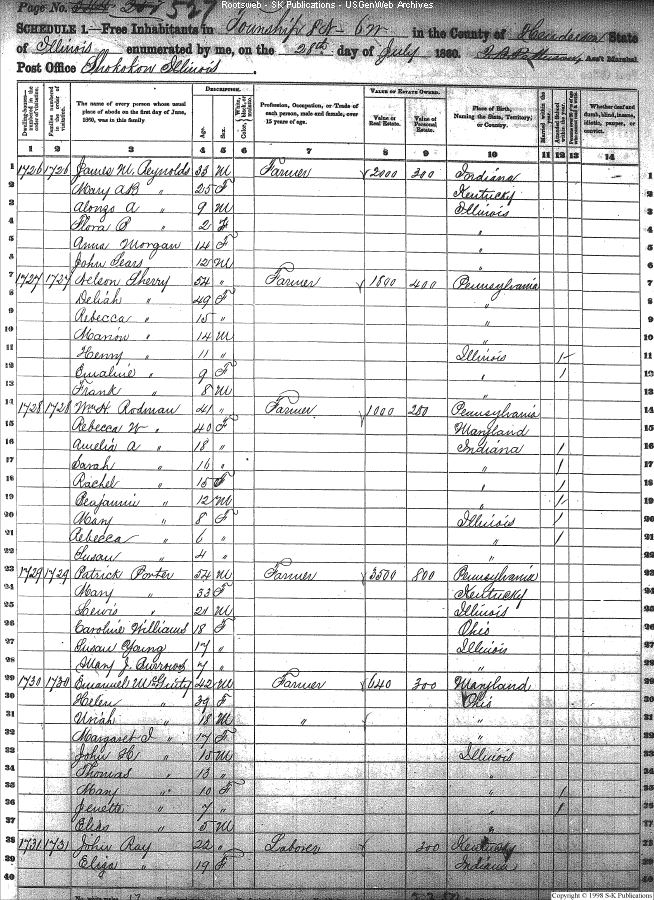 Rootsweb - SK Publications - USGenWeb Archives
Page No. 527
SCHEDULE 1.—Free Inhabitants in Township 8N 6W in the County of Henderson State
of Illinois enumerated by me, on the 28th day of July 1860. Ass't Marshal.
Post Office Shokokon Illinois.
Dwelling-houses—numbered in the order of visitation.
Families numbered in the order of visitation.
The name of every person whose usual place of abode on the first day of June, 1860, was in this family.
DESCRIPTION.
Age.
Sex.
Color, White, black, or mulatto.
Profession, Occupation, or Trade of each person, male and female, over 15 years of age.
VALUE OF ESTATE OWNED.
Value of Real Estate.
Value of Personal Estate.
Place of Birth, Naming the State, Territory, or Country.
Married within the year.
Attended School within the year.
Whether deaf and dumb, blind, insane, idiotic, pauper, or convict.
1 2 3 4 5 6 7 8 9 10 11 12 13 14
1 1726 1726 James M. Reynolds 33 M Farmer 2000 300 Indiana 1
2 Mary A B " 25 F Kentucky 2
3 Alonzo A " 9 M Illinois 3
4 Flora B " 2 F " 4
5 Anna Morgan 14 F " 5
6 John Sears 12 M " 6
7 1727 1727 Nelson Sherry 54 " Farmer 1800 400 Pennsylvania 7
8 Deliah " 49 F " 8
9 Rebecca " 15 " " 9
10 Marion " 14 M " 10
11 Henry " 11 " Illinois 1 11
12 Emaline " 9 F " 1 12
13 Frank " 8 M " 13
14 1728 1728 Wm H. Rodman 41 " Farmer 1000 250 Pennsylvania 14
15 Rebecca W " 40 F Maryland 15
16 Amelia A " 18 " Indiana 1 16
17 Sarah " 16 " " 1 17
18 Rachel " 15 F " 1 18
19 Benjamin " 12 M " 1 19
20 Mary " 8 F Illinois 1 20
21 Rebecca " 6 " " 1 21
22 Susan " 4 " " 22
23 1729 1729 Patrick Porter 54 M Farmer 3500 800 Pennsylvania 23
24 Mary " 33 F Kentucky 24
25 Lewis " 21 M Illinois 25
26 Caroline Williams 18 F Ohio 26
27 Susan Young 17 " Illinois 27
28 Mary J. Burrows 7 " " 28
29 1730 1730 Emanuel McGinty 42 M Farmer 640 300 Maryland 29
30 Helen " 39 F Ohio 30
31 Uriah " 18 M " " 31
32 Margaret J " 17 F " 32
33 John H " 15 M Illinois 33
34 Thomas " 13 " " 34
35 Mary " 10 F " 1 35
36 Jenette " 7 " " 1 36
37 Elias " 5 M " 37
38 1731 1731 John Ray 22 " Laborer 300 Kentucky 38
39 Eliza " 19 F Indiana 39
40 40
Copyright © 1998 S-K Publications